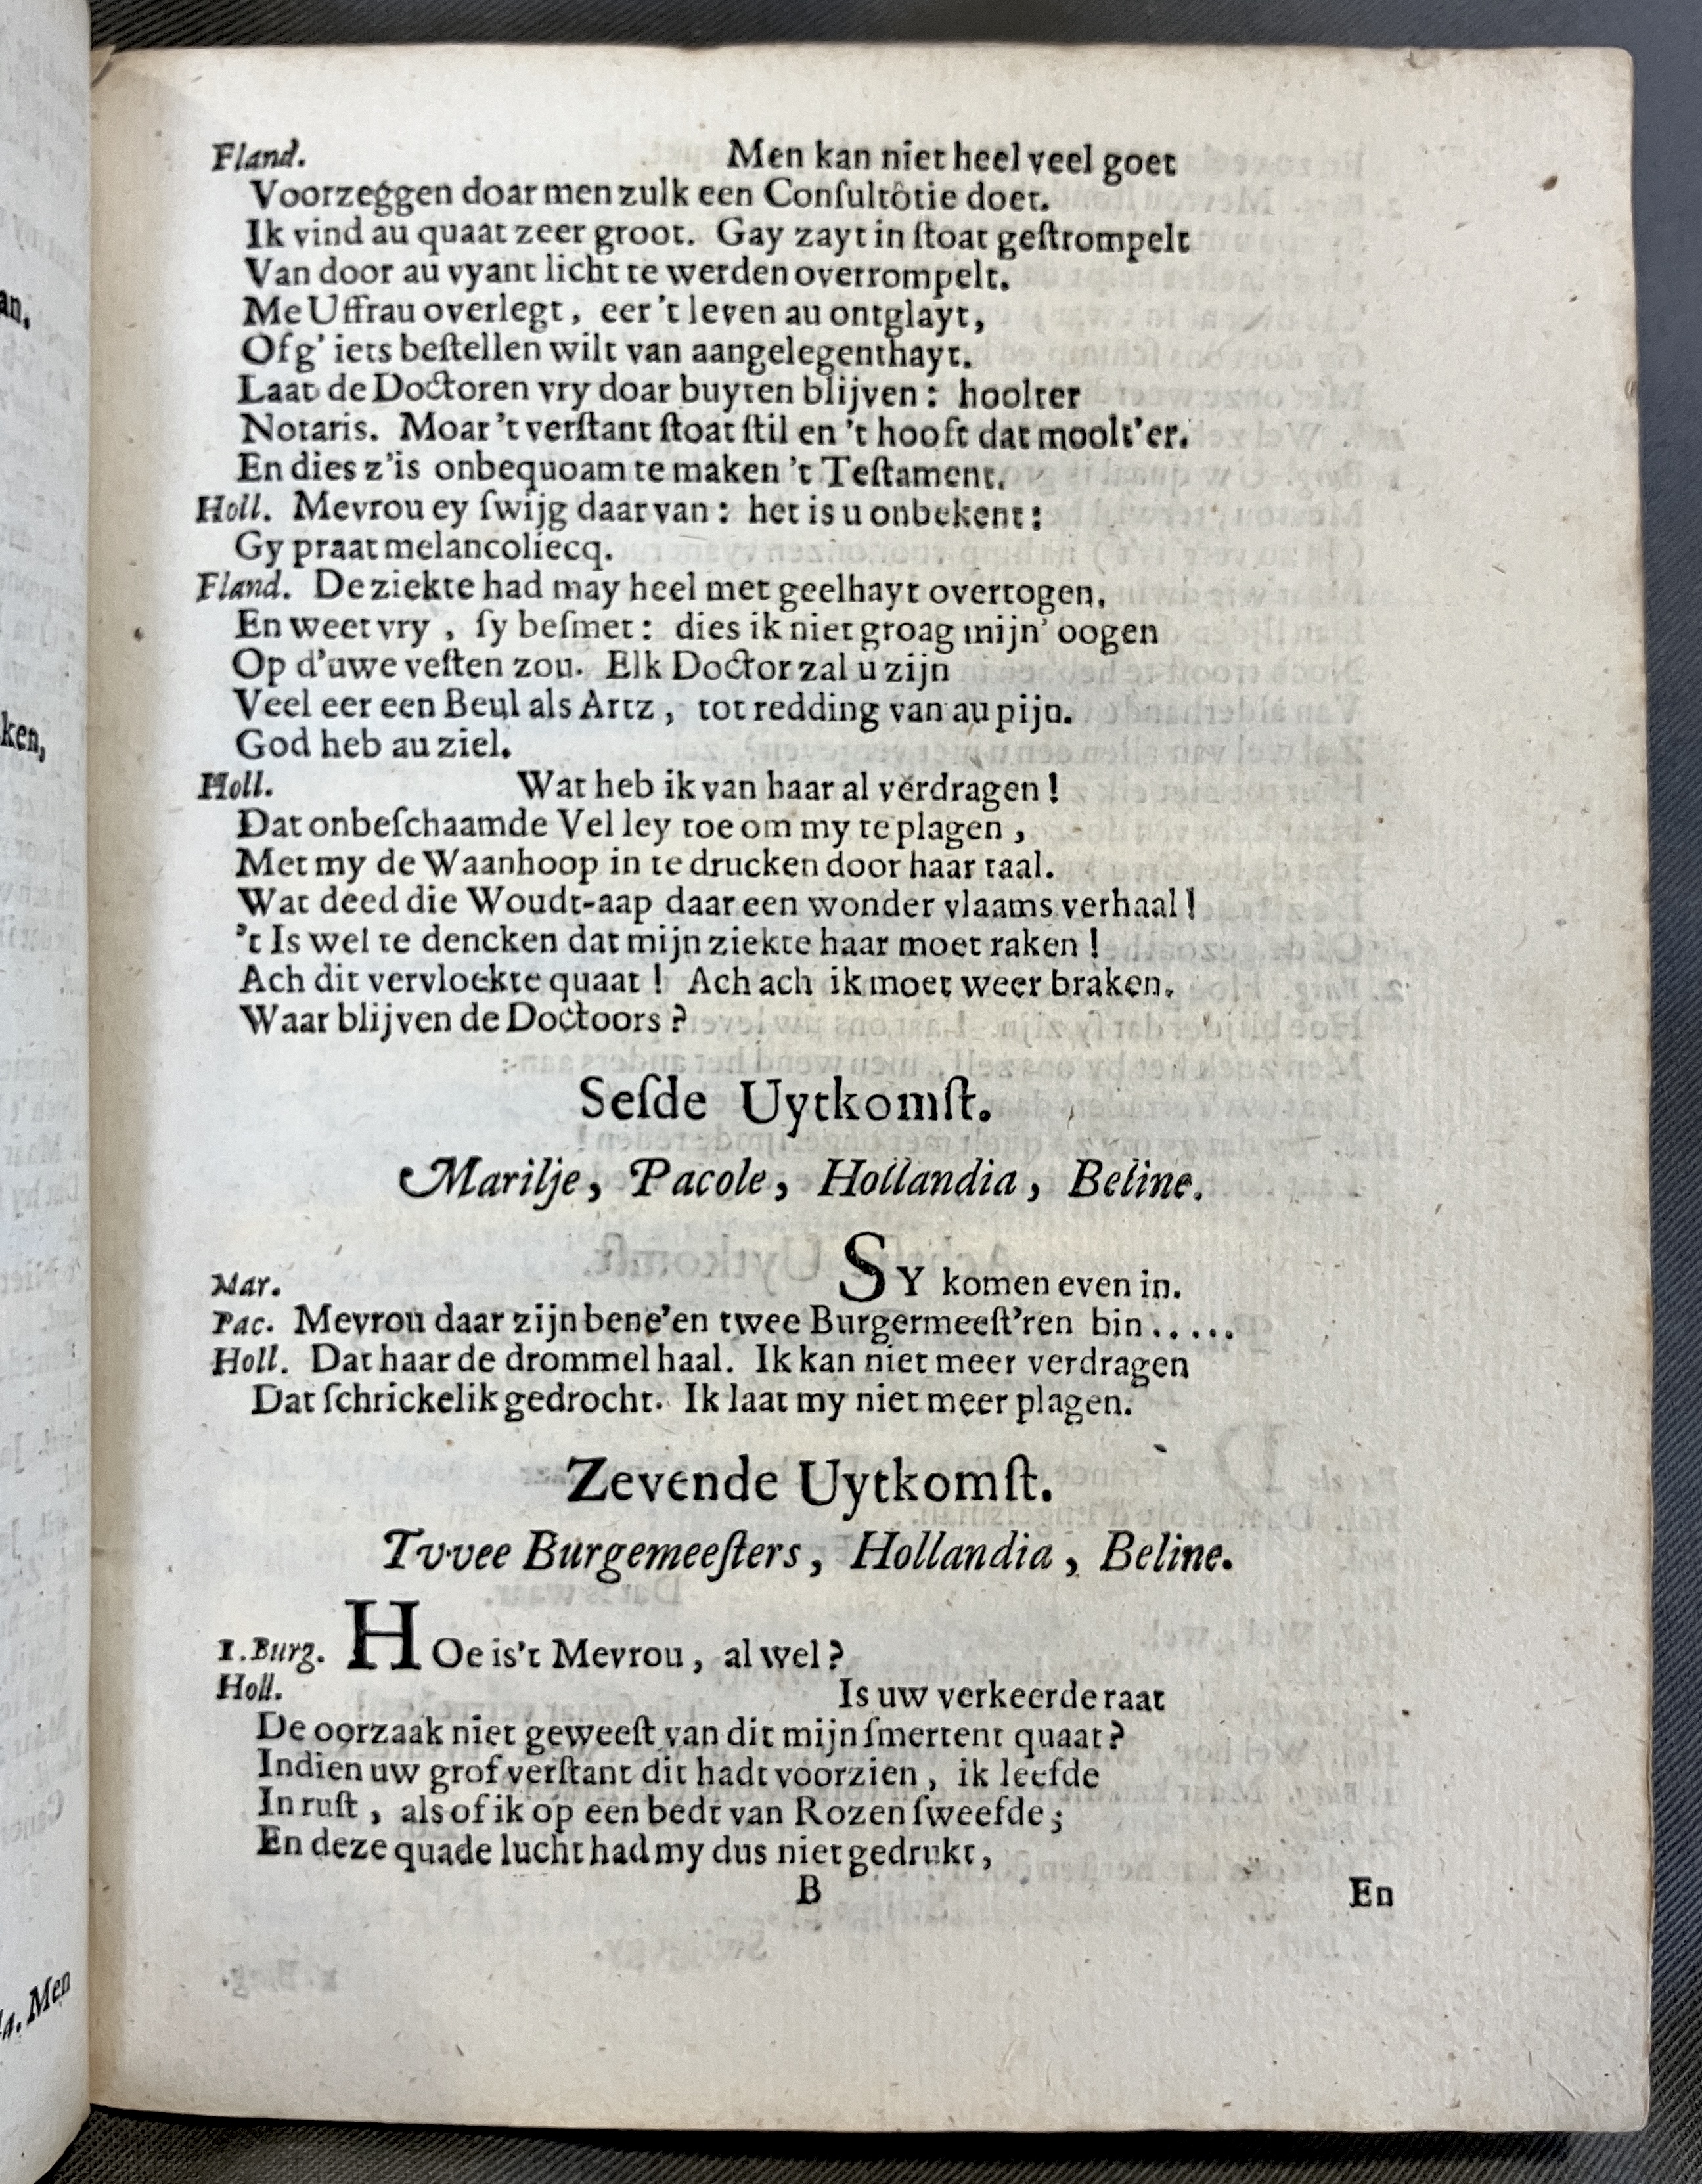 Fland. Men kan niet heel veel goet
Voorzeggen doar men zulk een Conſultôtie doet.
Ik vind au quaat zeer groot. Gay zayt in ſtoat geſtrompelt
Van door au vyant licht te werden overrompelt.
Me Uffrau overlegt, eer 't leven au ontglayt,
Of g' iets beſtellen wilt van aangelegenthayt.
Laat de Doctoren vry doar buyten blijven: hoolter
Notaris. Moar 't verſtant ſtoat ſtil en 't hooft dat moolt'er.
En dies z'is onbequoam te maken 't Teſtament.
Holl. Mevrou ey ſwijg daar van: het is u onbekent:
Gy praat melancoliecq.
Fland. De ziekte had may heel met geelhayt overtogen,
En weet vry, ſy beſmet: dies ik niet groag mijn' oogen
Op d'uwe veſten zou. Elk Doctor zal u zijn
Veel eer een Beul als Artz, tot redding van au pijn.
God heb au ziel.
Holl. Wat heb ik van haar al verdragen!
Dat onbeſchaamde Vel ley toe om my te plagen,
Met my de Waanhoop in te drucken door haar taal.
Wat deed die Woudt-aap daar een wonder vlaams verhaal!
't Is wel te dencken dat mijn ziekte haar moet raken!
Ach dit vervloekte quaat! Ach ach ik moet weer braken,
Waar blijven de Doctoors?
Sesde Uytkomſt.
Marilje, Pacole, Hollandia, Beline.
Mar. SY komen even in.
Pac. Mevrou daar zijn bene'en twee Burgermeeſt'ren bin.....
Holl. Dat haar de drommel haal. Ik kan niet meer verdragen
Dat ſchrickelik gedrocht. Ik laat my niet meer plagen.
Zevende Uytkomſt.
Tvvee Burgemeeſters, Hollandia, Beline.
1. Burg. HOe is't Mevrou, al wel?
Holl. Is uw verkeerde raat
De oorzaak niet geweeſt van dit mijn ſmertent quaat?
Indien uw grof verſtant dit hadt voorzien, ik leefde
In ruſt, als of ik op een bedt van Rozen ſweefde;
En deze quade lucht had my dus niet gedrukt,
B En
an,
ken,
Men